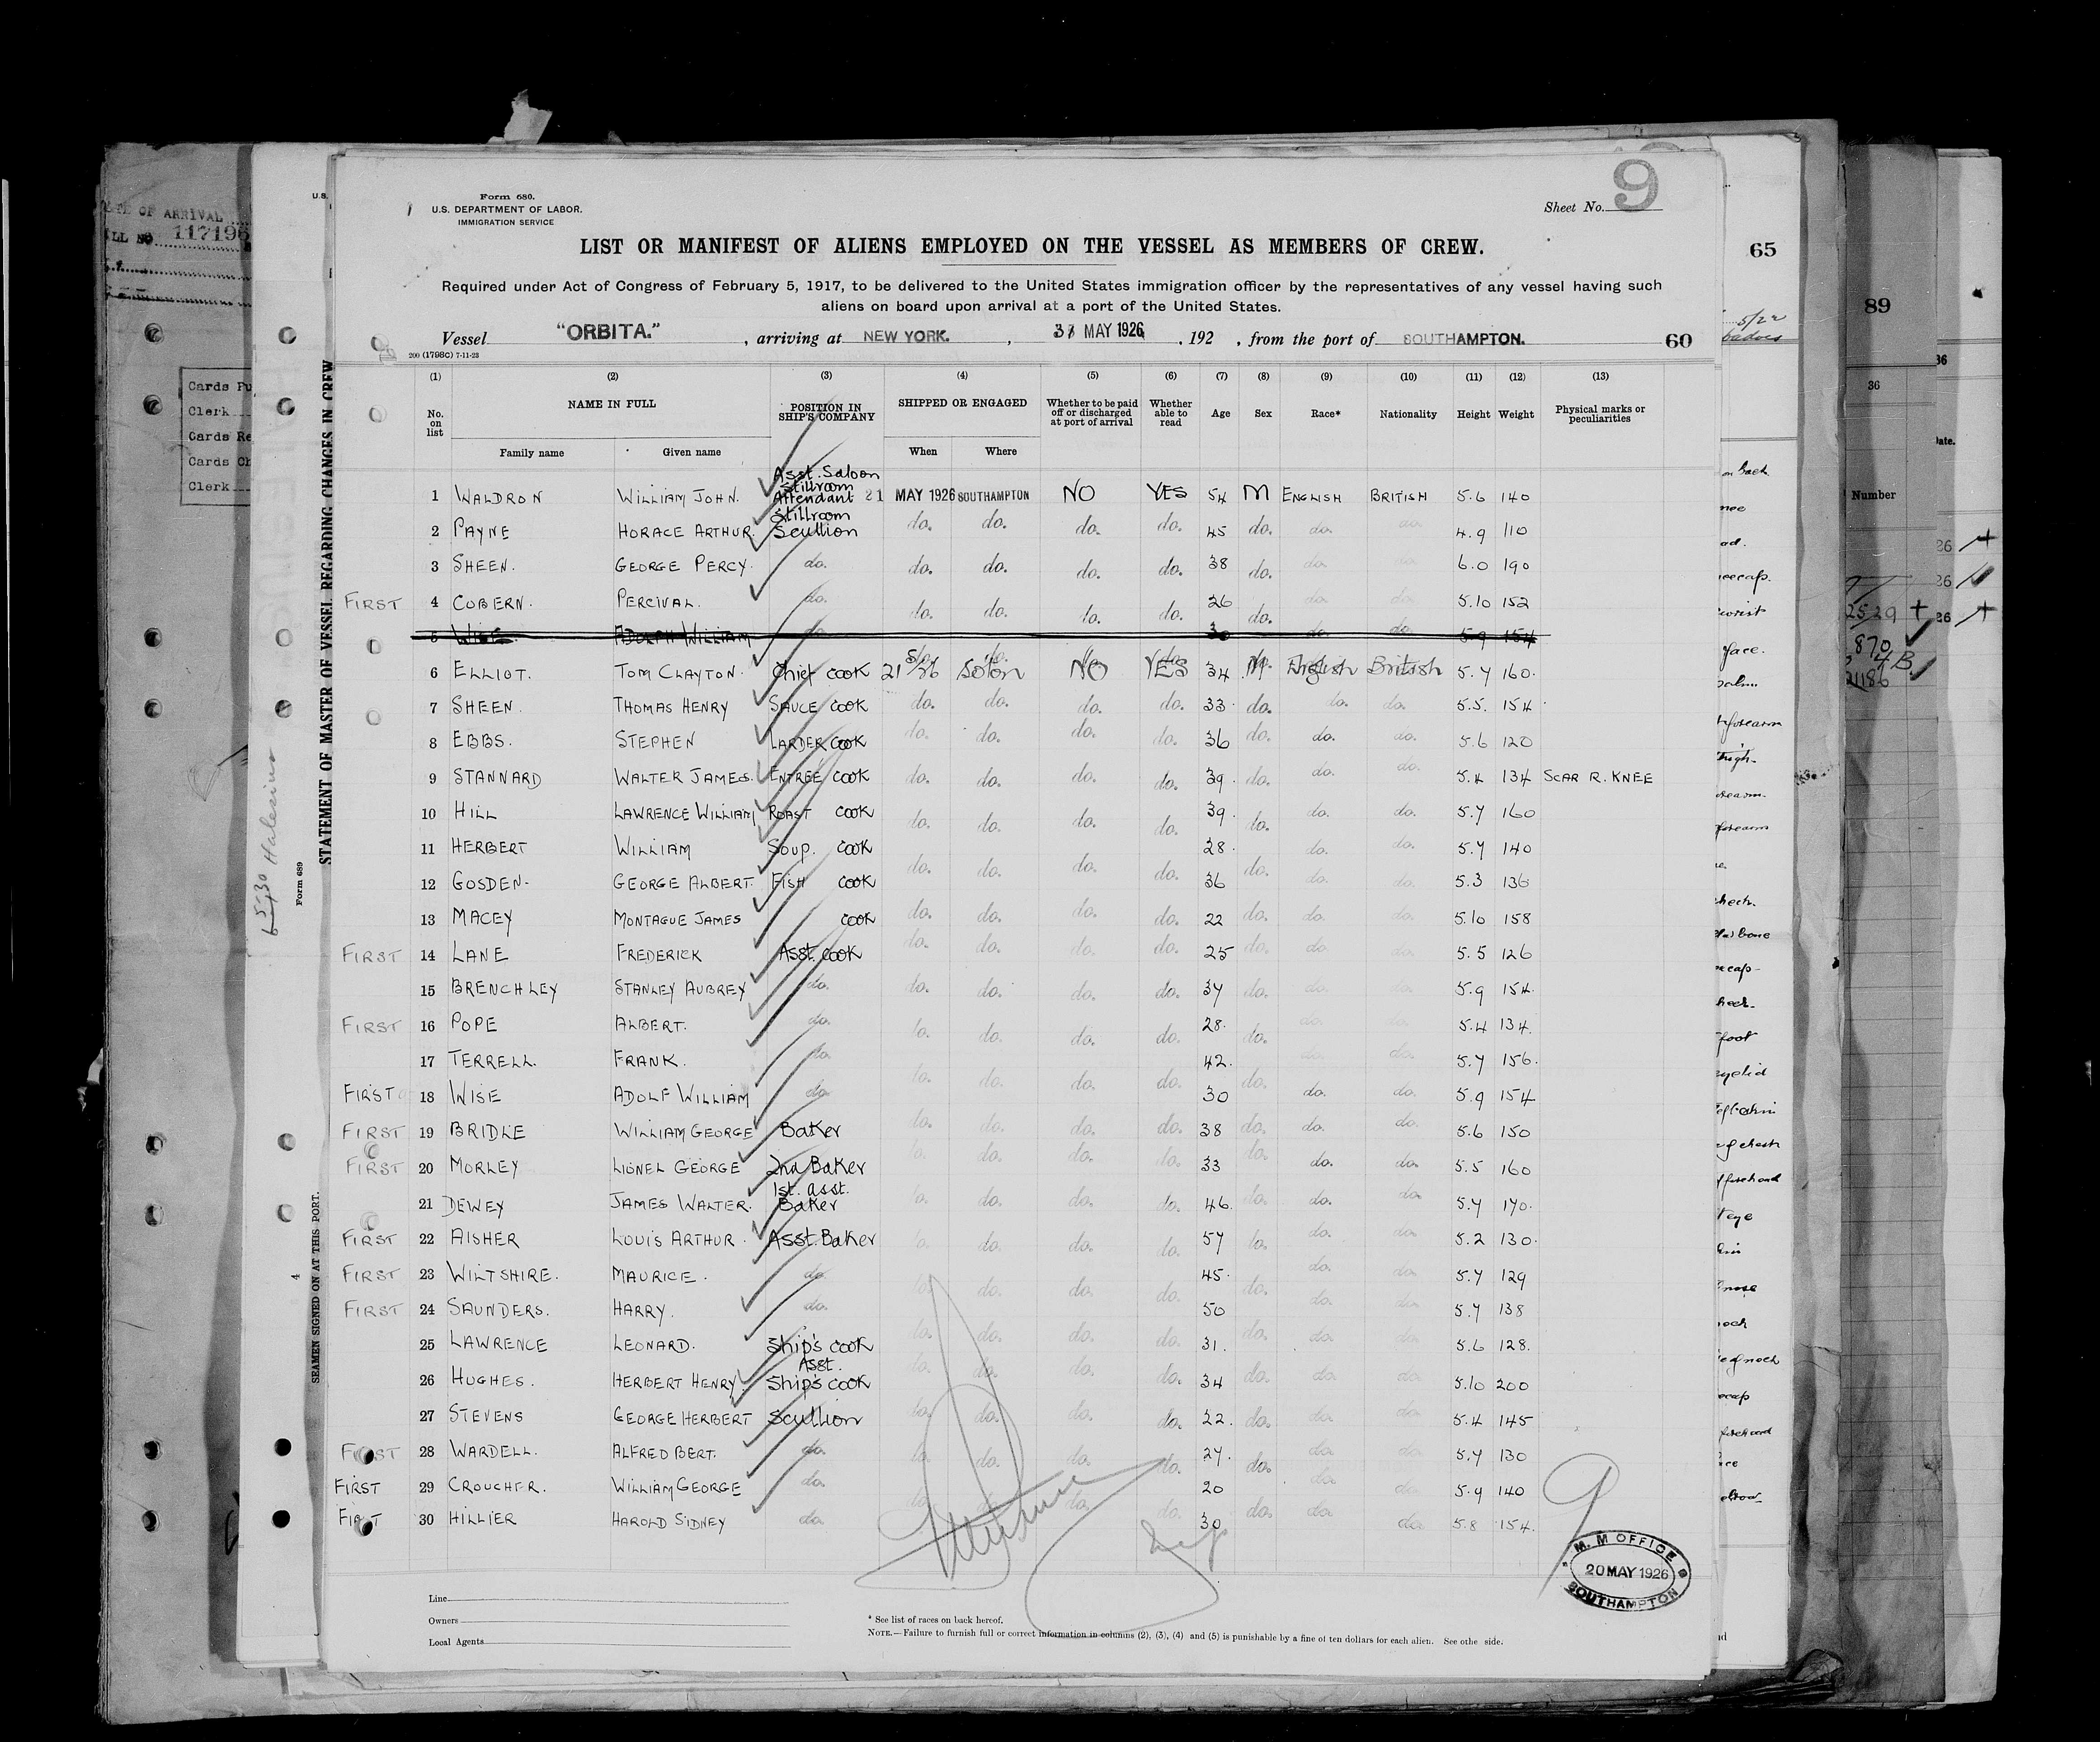 Form 680.
U.S. DEPARTMENT OF LABOR.
IMMIGRATION SERVICE
Sheet No. 9
LIST OR MANIFEST OF ALIENS EMPLOYED ON THE VESSEL AS MEMBERS OF CREW.
Required under Act of Congress of February 5, 1917, to be delivered to the United States immigration officer by the representatives of any vessel having such
aliens on board upon arrival at a port of the United States.
Vessel "ORBITA." , arriving at NEW YORK. , MAY 1926 , 192 , from the port of SOUTHAMPTON. 60
200 (1798C) 7-11-23
(1) (2) (3) (4) (5) (6) (7) (8) (9) (10) (11) (12) (13)
No. on list NAME IN FULL POSITION IN SHIP'S COMPANY SHIPPED OR ENGAGED Whether to be paid off or discharged at port of arrival Whether able to read Age Sex Race* Nationality Height Weight Physical marks or peculiarities
Family name Given name When Where
1 WALDRON WILLIAM JOHN. Asst. Saloon Stillroom Attendant 21 MAY 1926 SOUTHAMPTON NO YES 54 M ENGLISH BRITISH 5.6 140
2 PAYNE HORACE ARTHUR. Stillroom Scullion do. do. do. do. 45 do. do. do. 4.9 110
3 SHEEN. GEORGE PERCY. do. do. do. do. do. 38 do. do. do. 6.0 190
FIRST 4 COBERN. PERCIVAL. do. do. do. do. do. 26 do. do. do. 5.10 152
5 WISE ADOLPH WILLIAM do. do. do. do. do. 30 do. do. 5.9 154
6 ELLIOT. TOM CLAYTON. Chief cook 21 5/26 Soton NO YES 34 M English British 5.7 160.
7 SHEEN. THOMAS HENRY SAUCE COOK do. do. do. do. 33 do. do. do. 5.5. 154
8 EBBS. STEPHEN LARDER COOK do. do. do. do. 36 do. do. do. 5.6 120
9 STANNARD WALTER JAMES. ENTREÉ COOK do. do. do. do. 39. do. do. do. 5.4 134 SCAR R. KNEE
10 HILL LAWRENCE WILLIAM ROAST COOK do. do. do. do. 39. do. do. do. 5.7 160
11 HERBERT WILLIAM SOUP. COOK do. do. do. do. 28. do. do. do. 5.7 140
12 GOSDEN- GEORGE ALBERT. FISH COOK do. do. do. do. 36 do. do. do. 5.3 136
13 MACEY MONTAGUE JAMES COOK do. do. do. do. 22 do. do. do. 5.10 158
FIRST 14 LANE FREDERICK Asst. COOK do. do. do. do. 25 do. do. do. 5.5 126
15 BRENCHLEY STANLEY AUBREY do. do. do. do. do. 37 do. do. do. 5.9 154.
FIRST 16 POPE ALBERT. do. do. do. do. do. 28. do. do. do. 5.4 134.
17 TERRELL. FRANK. do. do. do. do. do. 42. do. do. do. 5.7 156.
FIRST 18 WISE ADOLF WILLIAM do. do. do. do. do. 30 do. do. do. 5.9 154
FIRST 19 BRIDLE WILLIAM GEORGE Baker do. do. do. do. 38 do. do. do. 5.6 150
FIRST 20 MORLEY LIONEL GEORGE 2nd Baker do. do. do. do. 33 do. do. do. 5.5 160
21 DEWEY JAMES WALTER. 1st. asst. Baker do. do. do. do. 46. do. do. do. 5.7 170.
FIRST 22 AISHER LOUIS ARTHUR. Asst. Baker do. do. do. do. 57 do. do. do. 5.2 130.
FIRST 23 WILTSHIRE. MAURICE. do. do. do. do. do. 45. do. do. do. 5.7 129
FIRST 24 SAUNDERS. HARRY. do. do. do. do. do. 50 do. do. do. 5.7 138
25 LAWRENCE LEONARD. Ship's cook do. do. do. do. 31. do. do. do. 5.6 128.
26 HUGHES. HERBERT HENRY. Asst. Ship's cook do. do. do. do. 34 do. do. do. 5.10 200
27 STEVENS GEORGE HERBERT Scullion do. do. do. do. 22. do. do. do. 5.4 145
FIRST 28 WARDELL. ALFRED BERT. do. do. do. do. do. 27. do. do. do. 5.7 130
FIRST 29 CROUCHER. WILLIAM GEORGE do. do. do. do. do. 20 do. do. do. 5.9 140
FIRST 30 HILLIER HAROLD SIDNEY do. do. 30 do. do. do. 5.8 154.
9
M. M OFFICE
20 MAY 1926
SOUTHAMPTON
Line
Owners
Local Agents
* See list of races on back hereof.
NOTE.—Failure to furnish full or correct information in columns (2), (3), (4) and (5) is punishable by a fine of ten dollars for each alien. See othe side.
STATEMENT OF MASTER OF VESSEL REGARDING CHANGES IN CREW
Form 689
SEAMEN SIGNED ON AT THIS PORT.
4
OF ARRIVAL
117196
Cards Pu
Clerk
Cards Re
Cards Ch
Clerk
U.S.
65
89
36
Number
face.
forearm
thigh-
foot
eyelid